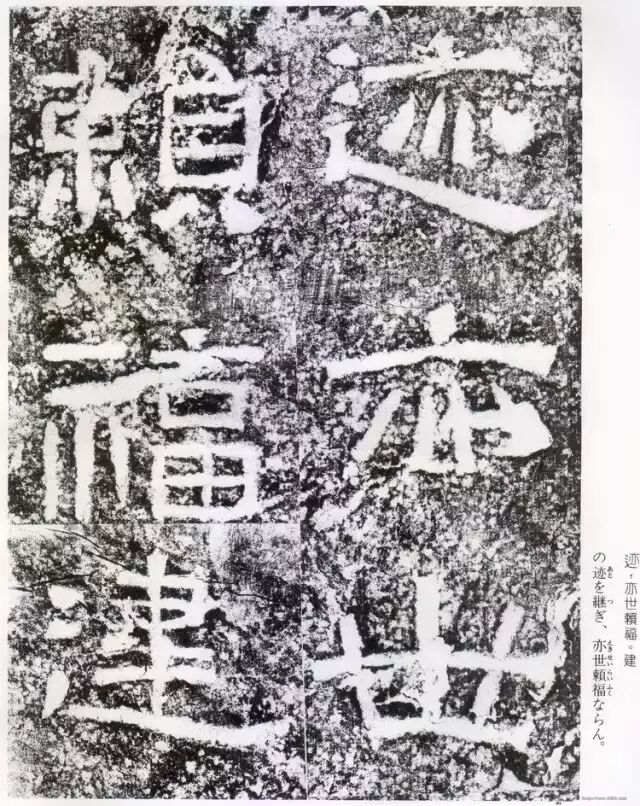 迹亦世
頼福建
迹，亦世頼福。建
の迹を継ぎ、亦世頼福ならん。